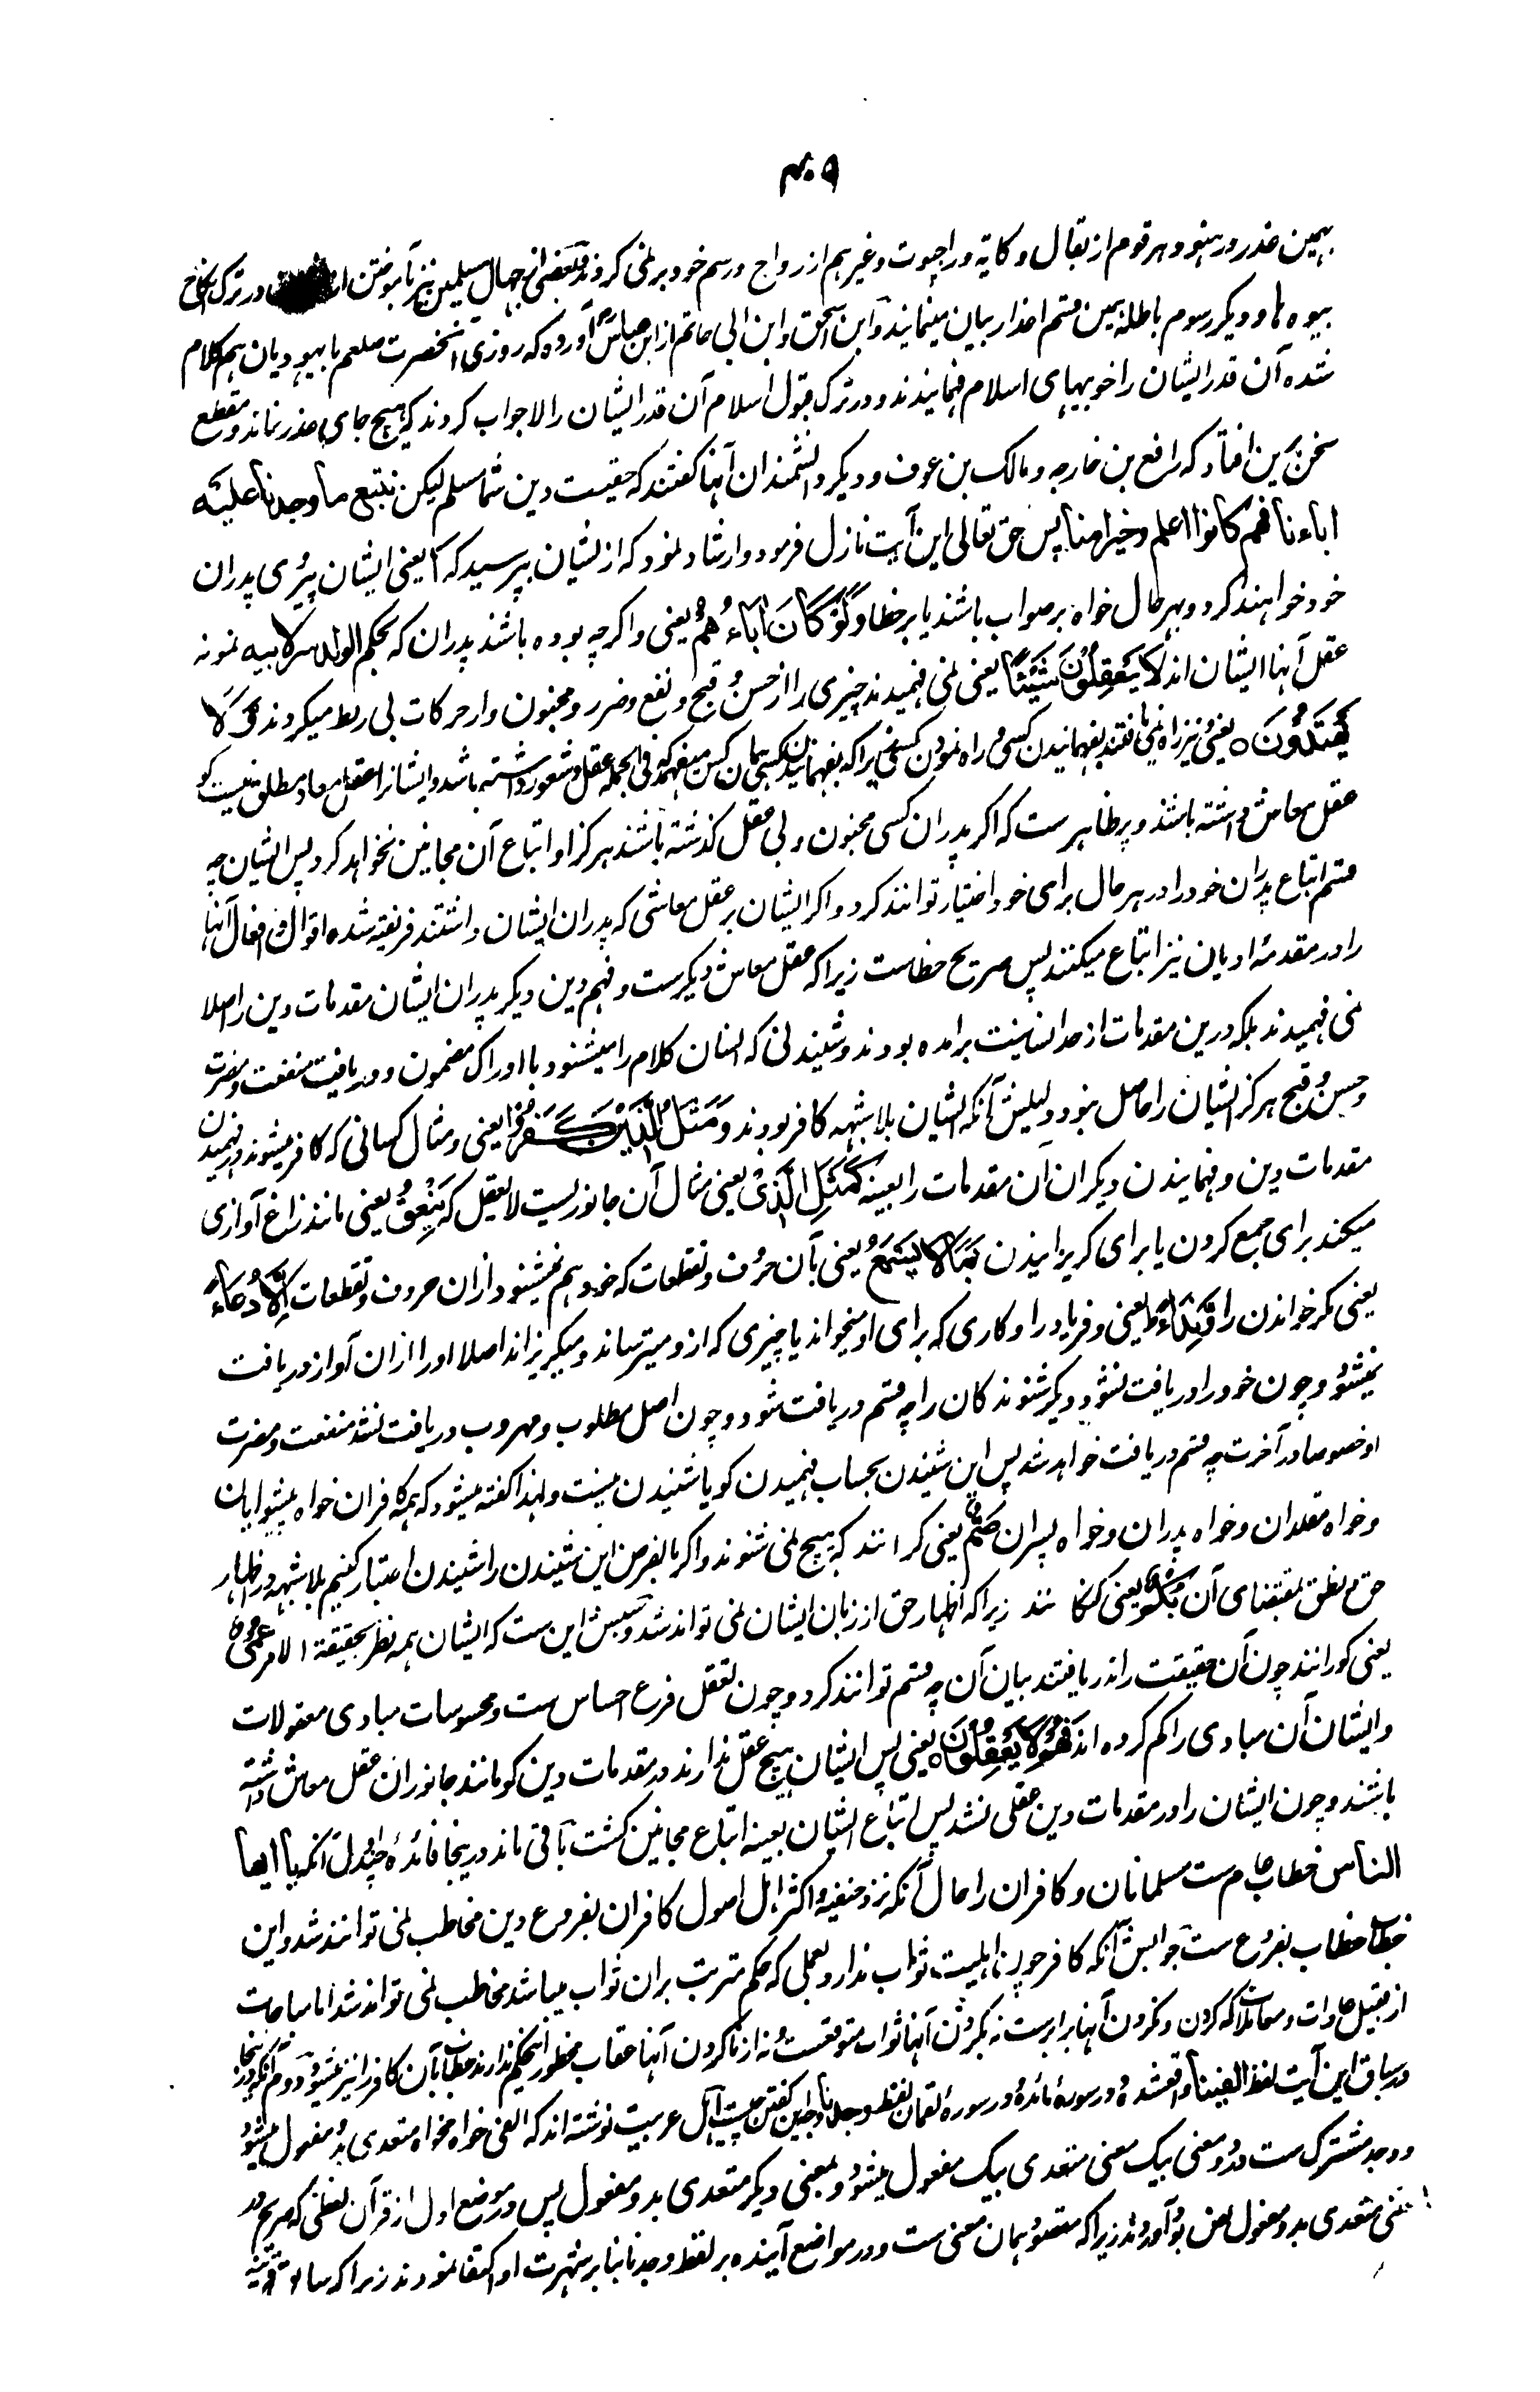 ۴۰۹
بهمین عذر در هنود هر قوم از بقال و کایته و راجپوت و غیرهم از رواج و رسم خود بر نمی گردند و بعضی از جهال مسلمین نیز بآموختن از در ترک نکاح
بیوه ها و دیگر رسوم باطله همین قسم اعذار بیان مینمایند و ابن اسحق و ابن ابی حاتم از ابن عباس آورده که روزی آنحضرت صلعم با یهودیان هم کلام
شده آن قدر ایشان را خوبیهای اسلام فهمانیدند و در ترک قبول اسلام آن قدر ایشان را لاجواب کردند که هیچ جای عذر نماند و مقطع
سخن برین افتاد که رافع بن خارجه و مالک بن عوف و دیگر دانشمندان آنها گفتند که حقیت دین شما مسلم لیکن نتبع ما وجدنا علیه
اباءنا فهم کانوا اعلم و خیرا منا پس حق تعالی این آیت نازل فرمود و ارشاد نمود که ازیشان بپرسید که آ یعنی ایشان پیروی پدران
خود خواهند کرد و بهر حال خواه بر صواب باشند یا بر خطا وَلَوْ كَانَ اٰبَاءُهُمْ یعنی و اگرچه بوده باشند پدران که بحکم الولد سر لابیه نمونه
عقل آنها ایشان اند لَا يَعْقِلُوْنَ شَيْئًا یعنی نمی فهمیدند چیزی را از حسن و قبح و نفع و ضرر و مجنون وار حرکات بی ربط میکردند وَّلَا
يَهْتَدُوْنَ ○ یعنی و نیز راه نمی یافتند بفهمانیدن کسی و راه نمودن کسی زیرا که بفهمانیدن کسی همان کس میفهمد که فی الجمله عقل و شعور داشته باشد و ایشانرا عقل معاد مطلق نیست گو
عقل معاش داشته باشند و پر ظاهر ست که اگر پدران کسی مجنون و بی عقل گذشته باشند هرگز او اتباع آن مجانین نخواهد کرد پس ایشان چه
قسم اتباع پدران خود را در هر حال برای خود اختیار توانند کرد و اگر ایشان بر عقل معاشی که پدران ایشان داشتند فریفته شده اقوال و افعال آنها
را در مقدمهٔ ادیان نیز اتباع میکنند پس صریح خطاست زیرا که عقل معاش دیگرست و فهم دین دیگر پدران ایشان مقدمات دین را اصلا
نمی فهمیدند بلکه درین مقدمات از حد انسانیت برآمده بودند و شنیدنی که انسان کلام را میشنود با ادراک مضمون و دریافت منفعت و مضرت
و حسن و قبح هرگز ایشان را حاصل نبود و دلیلش آنکه ایشان بلا شبهه کافر بودند وَمَثَلُ الَّذِيْنَ كَفَرُوْا یعنی و مثال کسانی که کافر میشوند در فهمیدن
مقدمات دین و فهمانیدن دیگران آن مقدمات را بعینه كَمَثَلِ الَّذِيْ یعنی مثال آن جانوریست لا یعقل که يَنْعِقُ یعنی مانند زاغ آوازی
میکند برای جمع کردن یا برای گریزانیدن بِمَا لَا يَسْمَعُ یعنی بآن حروف و تقطعات که خود هم نمیشنود ازان حروف و تقطعات اِلَّا دُعَاءً
یعنی مگر خواندن را وَّنِدَاءً ط یعنی و فریاد را و کاری که برای او میخواند یا چیزی که ازو میترساند و میگریزاند اصلا او را ازان آواز دریافت
نمیشود و چون خود را دریافت نشود دیگر شنوندگان را چه قسم دریافت شود و چون اصل مطلوب و مهروب دریافت نشد منفعت و مضرت
او خصوصا در آخرت چه قسم دریافت خواهد شد پس این شنیدن بحساب فهمیدن گویا شنیدن نیست و لهذا گفته میشود که همه کافران خواه پیشوایان
و خواه مقلدان و خواه پدران و خواه پسران صُمٌّ یعنی کرانند که هیچ نمی شنوند و اگر بالفرض این شنیدن را شنیدن اعتبار کنیم بلا شبهه در اظهار
حق و نطق بمقتضای آن بُكْمٌ یعنی گنگانند زیرا که اظهار حق از زبان ایشان نمی تواند شد و سببش این ست که ایشان همه نظر بحقیقة الامر عُمْيٌ
یعنی کورانند چون آن حقیقت را ندریافتند بیان آن چه قسم توانند کرد و چون تعقل فرع احساس ست و محسوسات مبادی معقولات
و ایشان آن مبادی را گم کرده اند فَهُمْ لَا يَعْقِلُوْنَ ○ یعنی پس ایشان هیچ عقل ندارند در مقدمات دین گو مانند جانوران عقل معاش داشته
باشند و چون ایشان را در مقدمات دین عقلی نشد پس اتباع ایشان بعینه اتباع مجانین گشت باقی ماند درینجا فائدهٔ چند اول آنکه یا ایها
الناس خطاب عام ست مسلمانان و کافران را حال آنکه نزد حنفیه و اکثر اهل اصول کافران بفروع دین مخاطب نمی توانند شد و این
خطاب خطاب بفروع ست جوابش آنکه کافر چون اهلیت ثواب ندارد بعملی که حکم مترتب بران ثواب میباشد مخاطب نمی تواند شد اما مباحات
از قبیل عادات و معاملات که کردن و نکردن آنها برابرست نه بکردن آنها ثواب متوقعست و نه از ناکردن آنها عقاب محظور اینحکم ندارند خطاب بآن کافر را نیز میشود دوم آنکه درینجا
در سیاق این آیت لفظ الفینا واقعشده و در سورهٔ مائده و در سورهٔ لقمان لفظ وجدنا وجه این گفتن چیست اهل عربیت نوشته اند که الفی خواه مخواه متعدی بدو مفعول میشود
و وجد مشترک ست در دو معنی بیک معنی متعدی بیک مفعول میشود و بمعنی دیگر متعدی بدو مفعول پس در موضع اول از قرآن لفظی که صریح در
معنی متعدی بدو مفعول نص بود آوردند زیرا که مقصود همان معنی ست و در مواضع آینده بر لفظ وجدنا بنابر شهرت او اکتفا نمودند زیرا که سابق قرینه